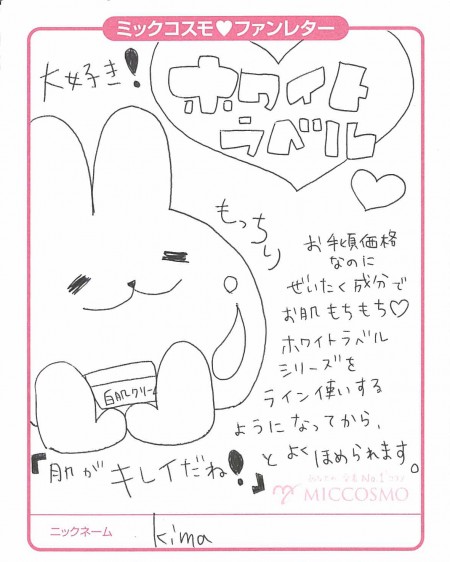 ミックコスモ♥ファンレター
大好き!
ホワイト
ラベル
もっちり
お手頃価格
なのに
ぜいたく成分で
お肌もちもち♡
ホワイトラベル
シリーズを
ライン使いする
ようになってから、
『肌がキレイだね!』とよくほめられます。
白肌クリーム
No.1
MICCOSMO
ニックネーム
kima